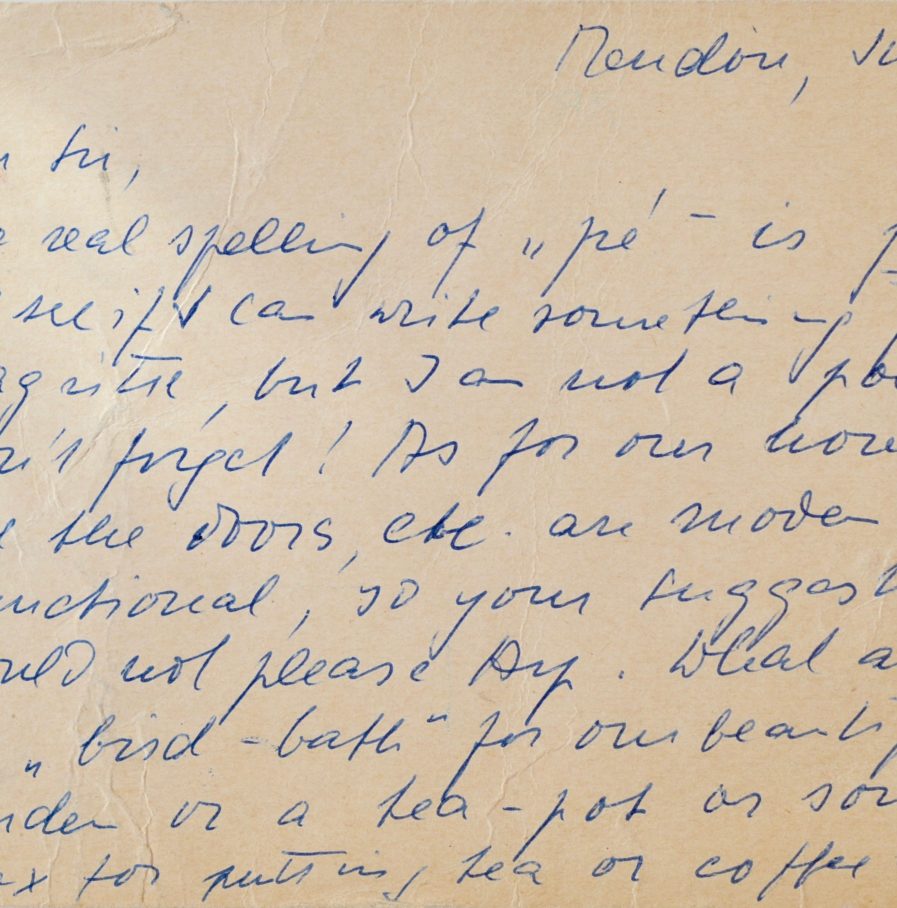 Meudon, Ju
Sir,
real spelling of „pé" is p
see if I can write something f
agritte, but I am not a po
n't forget! As for our hou
the doors, etc. are modern
unctional, so your suggest
ould not please Arp. What a
„bird-bath" for our beauti
rden or a tea-pot or so
x for putting tea or coffee